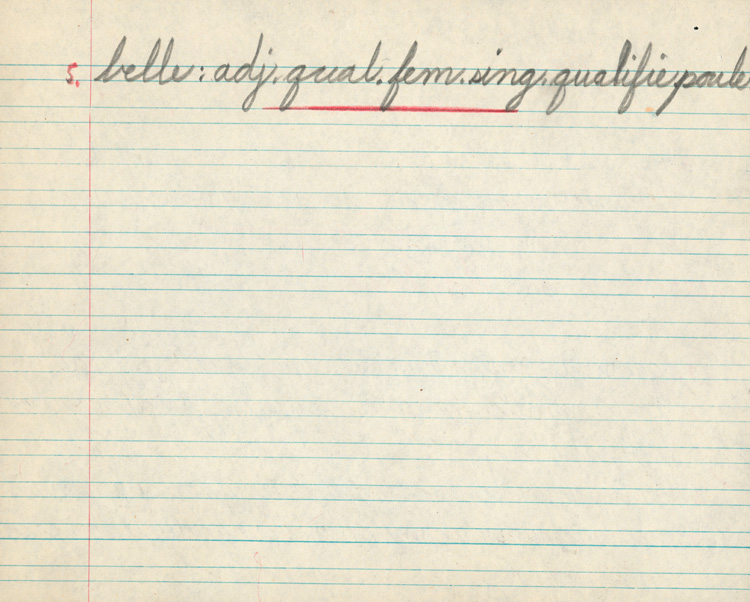 5. belle: adj. qual. fem. sing. qualifie poule